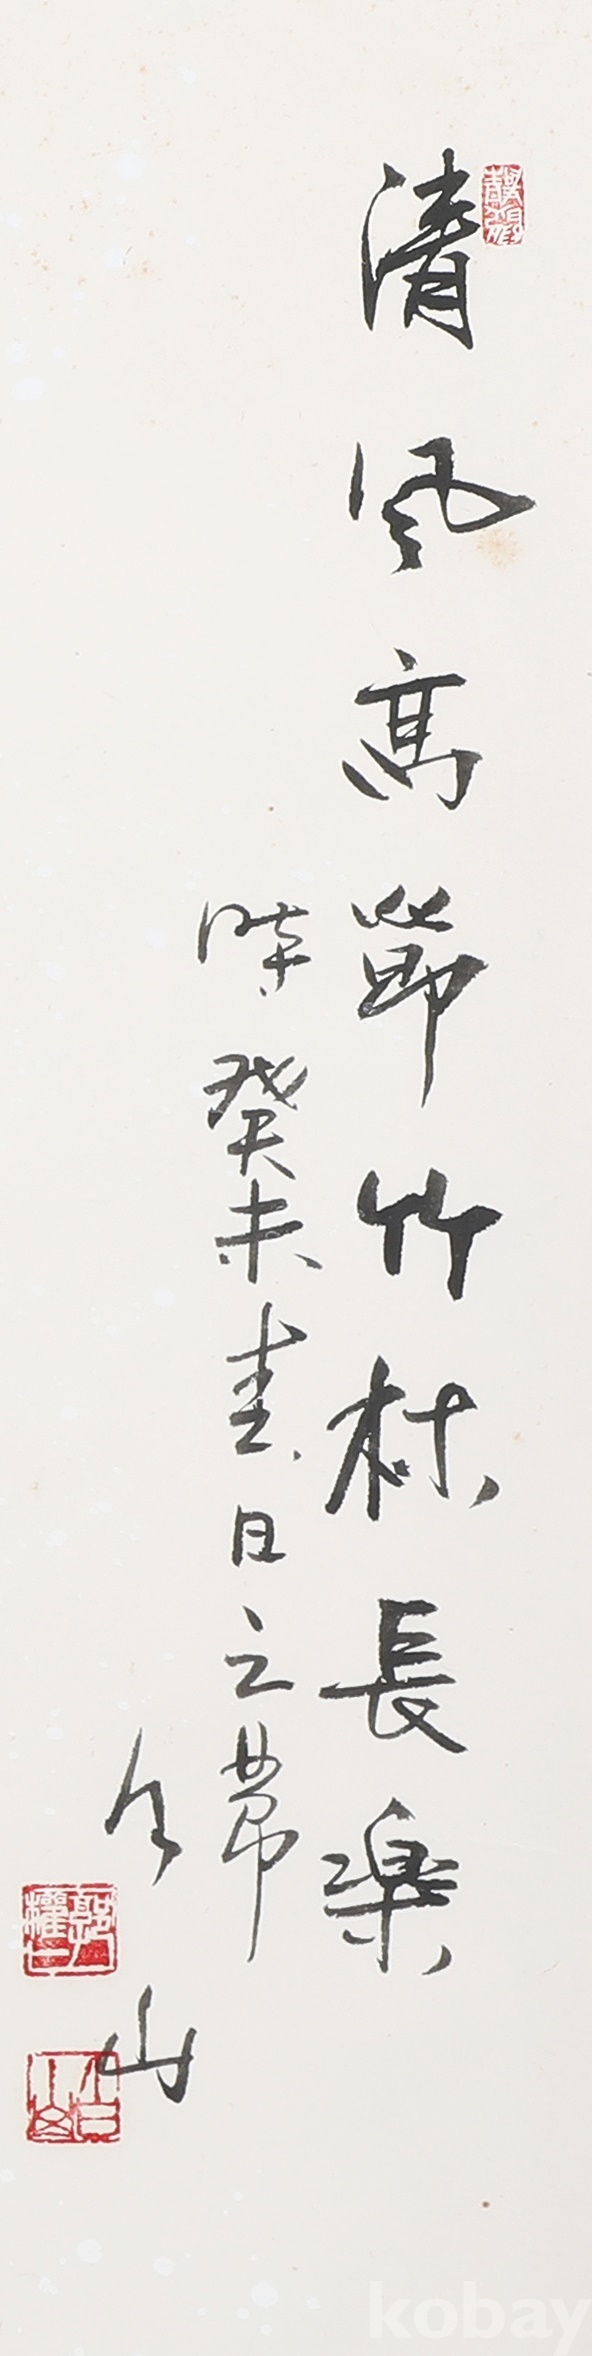 清風高節竹林長樂
時癸未春日之節
山
kobay